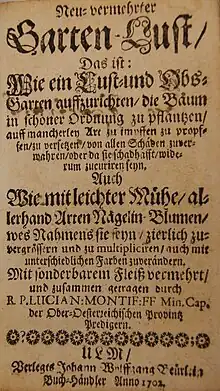 Neu-vermehrter
Garten-Lust/
Das ist:
Wie ein Lust-und Obs-
Garten auffzurichten/ die Bäum
in schöner Ordnung zu pflantzen/
auff mancherley Art zu impffen zu propf-
fen/ zu versetzen/ von allen Schäden zuver-
wahren/ oder da sie schadhafft/ wide-
rum zucuriren seyn.
Auch
Wie mit leichter Mühe/ al-
lerhand Arten Nägelin-Blumen/
wes Nahmens sie seyn/ zierlich zu-
vergrössern und zu multipliciren/ auch mit
unterschiedlichen Farben zuverändern.
Mit sonderbarem Fleiß vermehrt/
und zusammen getragen durch
R P. LUCIAN: MONTIF: FF Min. Cap.
der Ober-Oesterreichischen Provintz
Predigern.
ULM/
Verlegts Johann Wolffgang Beürlin/
Buch-Händler Anno 1702.